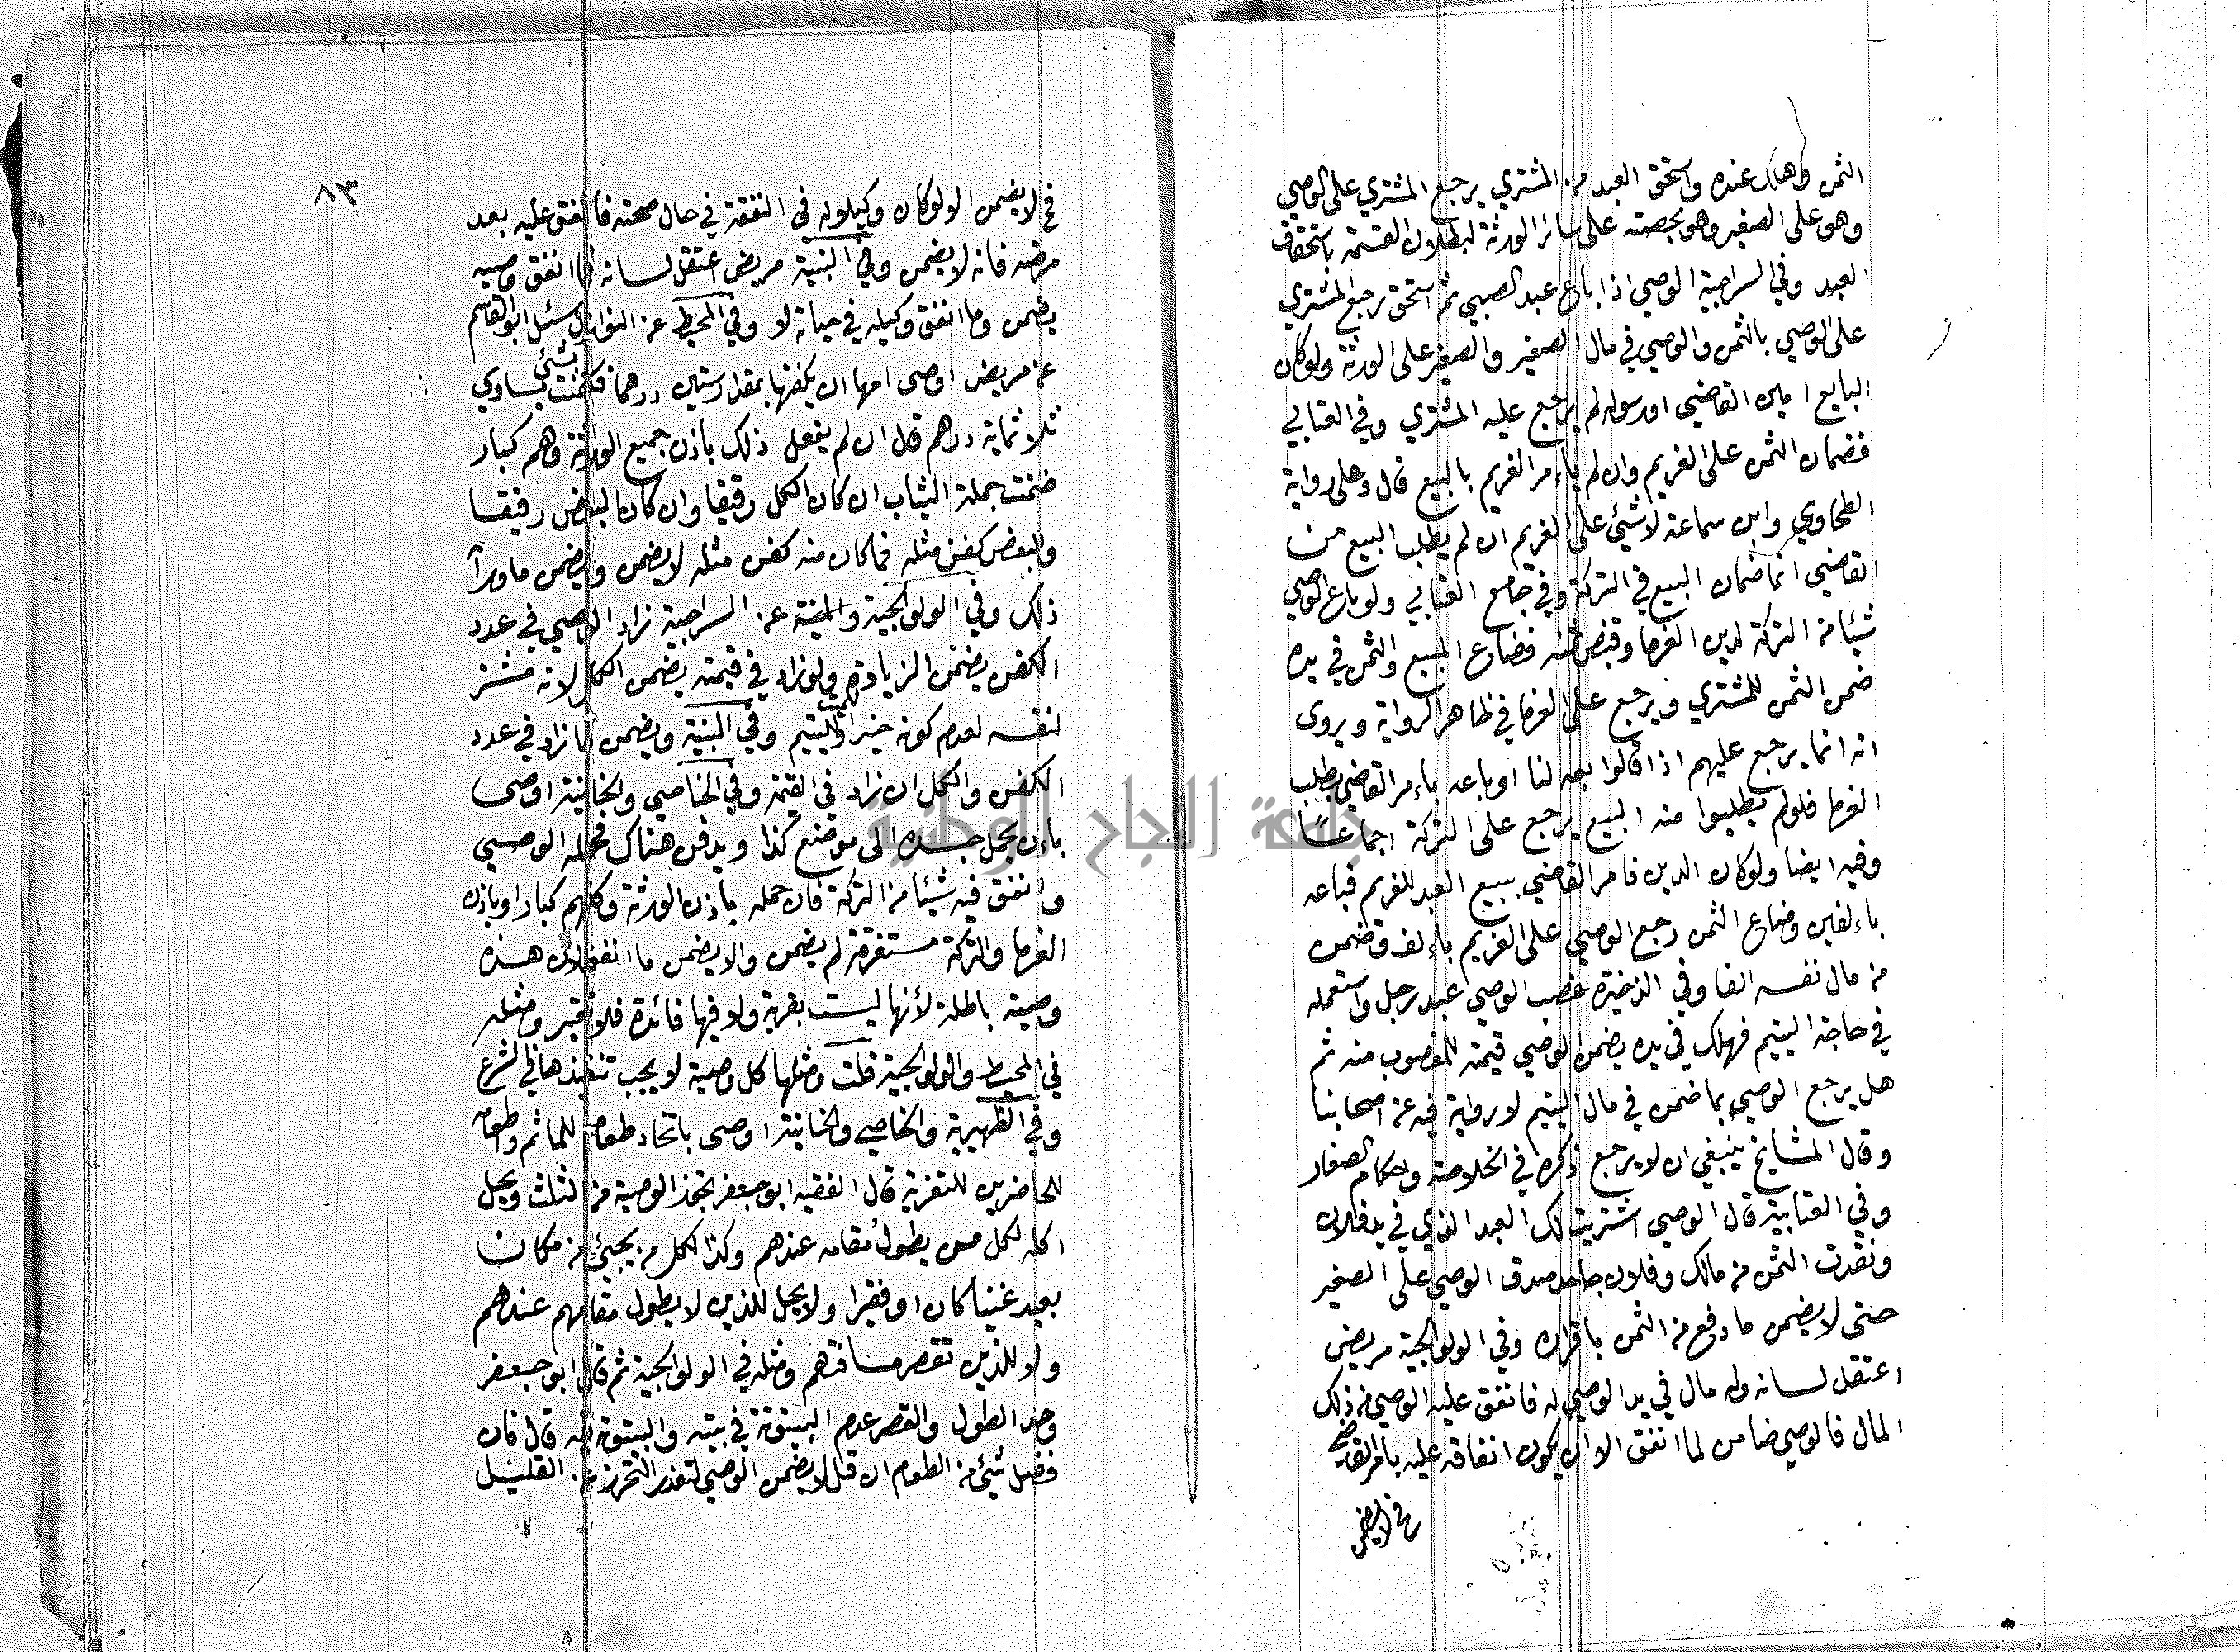 الثمن وهلك عنده واستحق العبد من المشتري يرجع المشتري على الوصي
وهو على الصغير وهو بحصته على سائر الورثة لبطلان القسمة باستحقاق
العبد وفي السراجية الوصي اذا باع عبد الصبي ثم استحق رجع المشتري
على الوصي بالثمن والوصي في مال الصغير والصغير على الورثة ولو كان
البايع امين القاضي او رسوله لم يرجع عليه المشتري وفي العتابي
فضمان الثمن على الغريم وان لم ياءمر الغريم بالبيع قال وعلى رواية
الطحاوي وابن سماعة لا شيئ على الغريم ان لم يطلب البيع من
القاضي انما ضمان البيع في التركة وفي جامع العتابي ولو باع الوصي
شيئا من التركة لدين الغرما وقبض ثمنه فضاع المبيع والثمن في يده
ضمن الثمن للمشتري ويرجع على الغرما في ظاهر الرواية ويروى
انه انما يرجع عليهم اذا قالوا بعه لنا او باعه باءمر القاضي بطلب
الغرما فلو لم يطلبوا منه البيع يرجع على التركة اجماعًا
وفيه ايضا ولو كان الدين فامر القاضي ببيع العبد للغريم فباعه
باءلفين وضاع الثمن رجع الوصي على الغريم باءلف وضمن
من مال نفسه الفا وفي الذخيرة غصب الوصي عبد رجل واستعمله
في حاجة اليتيم فهلك في يده يضمن الوصي قيمته للمغصوب منه ثم
هل يرجع الوصي بما ضمن في مال اليتيم لا رواية فيه عن اصحابنا
وقال المشايخ ينبغي ان لا يرجع ذكره في الخلاصة واحكام الصغار
وفي العتابية قال الوصي اشتريت لك العبد الذي في يد فلان
ونقدت الثمن من مالك وفلان جاحد صدق الوصي على الصغير
حتى لا يضمن ما دفع من الثمن باقراره وفي الولوالجية مريض
اعتقل لسانه وله مال في يد الوصي له فانفق عليه الوصي من ذلك
المال فالوصي ضامن لما انفق الا ان يكون انفاقه عليه باءمر القاضي
٨٣
فح لا يضمن الا ولو كان وكيلا له في النفقة في حال صحته فانفق عليه بعد
مرضه فانه لا يضمن وفي البنية مريض اعتقل لسانه فما انفق وصيه
يضمن وما انفق وكيله في حياته لا وفي المحيط عن النوازل سئل ابو القاسم
عن مريض اوصى امها ان يكفنها بمقدار ستين درهما فكفنت بشئ يساوي
ثلاثماية درهم قال ان لم يفعل ذلك باذن جميع الورثة وهم كبار
ضمنت جملة الثياب ان كان الكل رقيقا وان كان البعض رقيقا
والبعض كفن مثله فما كان منه كفن مثله لا يضمن ويضمن ما ورآ
ذلك وفي الولوالجية والمنية عن السراجية زاد الوصي في عدد
الكفن يضمن الزيادة ولو زاد في قيمته يضمن الكل لانه مشتر
لنفسه لعدم كونه خيرا لليتيم وفي البنية ويضمن ما زاد في عدد
الكفن والكل ان زاد في القيمة وفي الخاصي والخانية اوصى
باءن يحمل جسده الى موضع كذا ويدفن هناك فحمله الوصي
وانفق فيه شيئا من التركة فان حمله باذن الورثة وكلهم كبار او باذن
الغرما والتركة مستغرقة لم يضمن والا يضمن ما انفق لان هذه
وصية باطلة لأنها ليست بقربة ولا فيها فائدة فلا تعتبر ومثله
في المحيط والولوالجية قلت ومثلها كل وصية لا يجب تنفيذها في الشرع
وفي الظهيرية والخاصي والخانية اوصى باتخاد طعام للماثم واطعامه
للحاضرين للتعزية قال الفقيه ابو جعفر تجوز الوصية من الثلث ويحل
اكله لكل من يطول مقامه عندهم وكذا لكل من يجيئ من مكان
بعيد غنيا كان او فقيرا ولا يحل للذين لا يطول مقامهم عندهم
ولا للذين تقصر مسافتهم ومثله في الولوالجية ثم قال ابو جعفر
وحد الطول والقصر عدم البيتوتة في بيته والبيتوتة فيه قال فان
فضل شيئ من الطعام ان قل لا يضمن الوصي لتعذر التحرز عن القليل
جامعة النجاح الوطنية